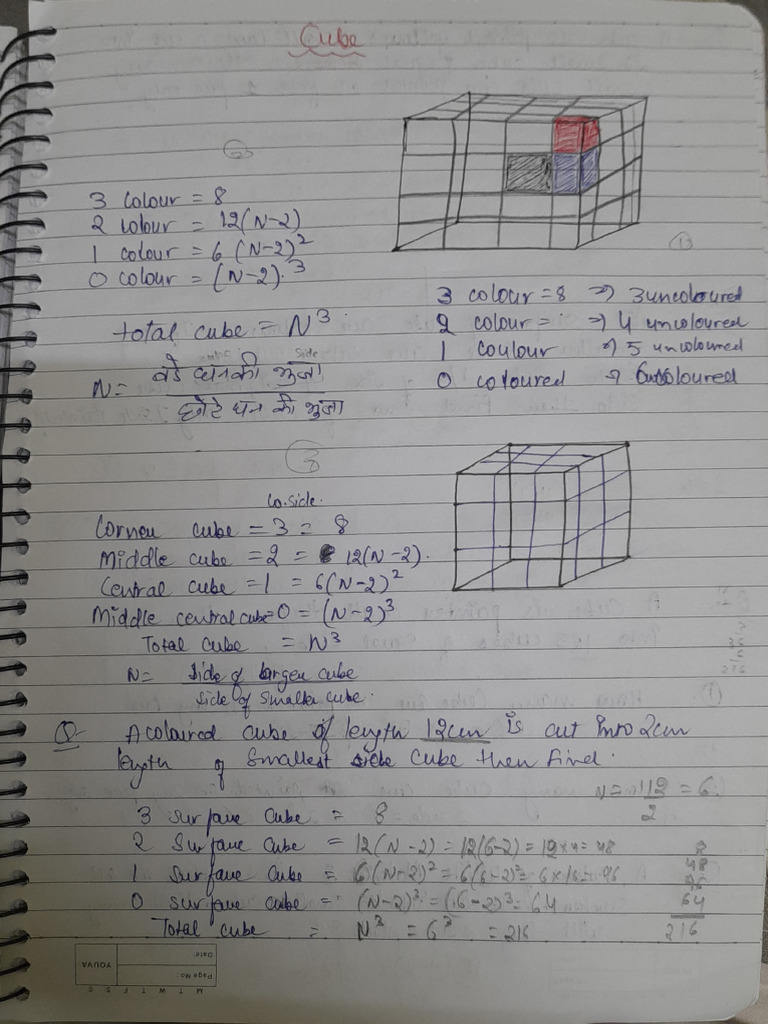 Cube
3 colour = 8
2 colour = 12(N-2)
1 colour = 6 (N-2)²
0 colour = (N-2)³
total cube = N³
N = बडे घन की भुजा side
छोटे घन की भुजा
3 colour = 8 → 3 uncoloured
2 colour = → 4 uncoloured
1 coulour → 5 uncoloured
0 coloured → 6
3
Corner cube = 3 = 8
Middle cube = 2 = 12(N-2).
Central cube = 1 = 6(N-2)²
Middle central cube = 0 = (N-2)³
Total cube = N³
N = side of larger cube
side of smaller cube.
Q- A coloured cube of length 12cm is cut into 2cm
length of smallest side cube then find.
N = 12 = 6
2
3 surface cube = 8
2 surface cube = 12(N-2) = 12(6-2) = 12×4 = 48
1 surface cube = 6(N-2)² = 6(6-2)² = 6×16 = 96
0 surface cube = (N-2)³ = (6-2)³ = 64
Total cube = N³ = 6³ = 216
8
48
96
64
216
YOUVA
Date:
Page No:
M T W T F S S